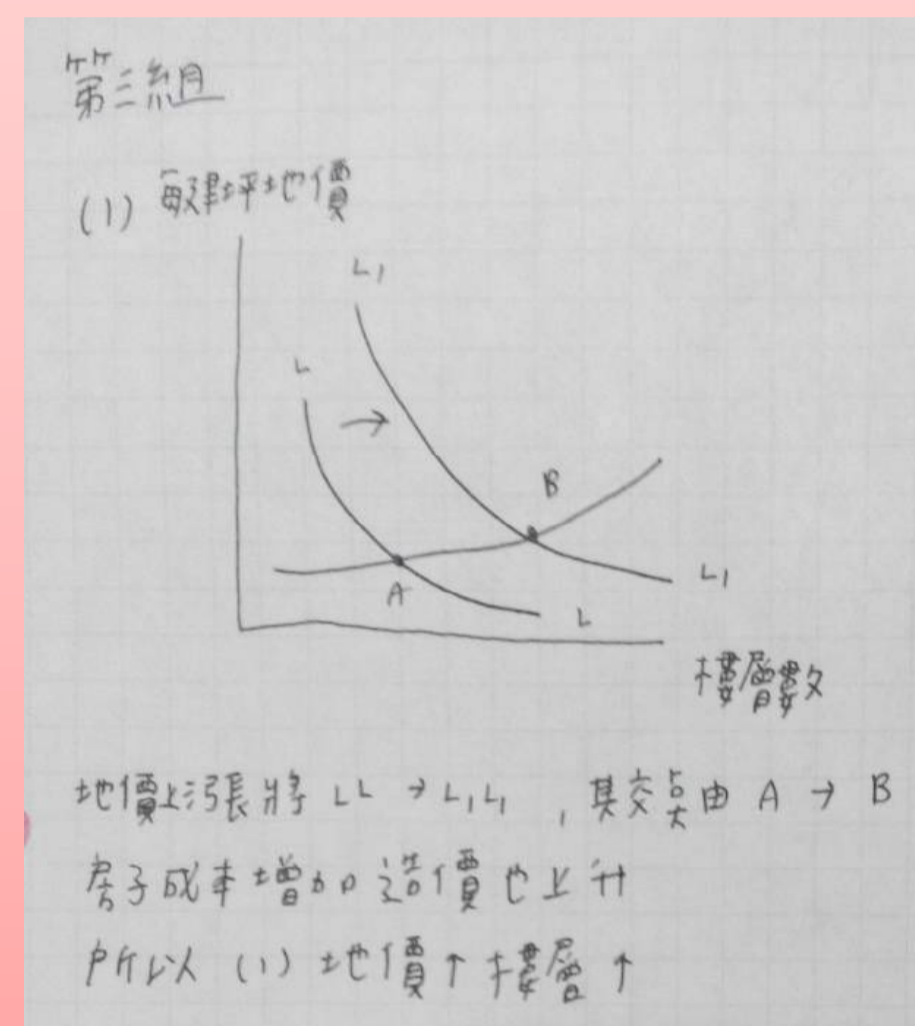 第三組
(1) 每建坪地價
L1
L
B
A
L1
L
樓層數
地價上漲將 LL → L1L1 , 其交點由 A → B
房子成本增加造價也上升
所以 (1) 地價↑ 樓層↑